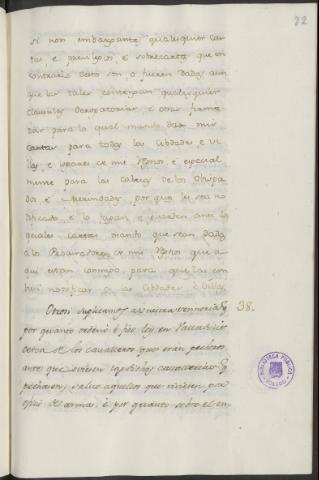 22
si non embargante qualesquier car
tas, e previlejos e sobrecartas que en
contrario desto son, o fueren dadas, aun
que las tales contengan qualesquier
clausulas derogatorias, e otras firme
zas para lo qual mando dar mis
cartas para todas las cibdades e vi
llas, e logares de mis Regnos, e especial
mente para las cabezas de los Obispa
dos e Merindades por que les sea no
tificado e lo sepan, e puedan
quales cartas mando que sean dadas
a los Procuradores de mis Regnos que a
qui estan conmigo, para que las en
bien notificar a las cibdades e Villas
Otrosi suplicamos a vuestra 38.
por quanto ordenó e fizo ley en Valladolid
cerca de los cavalleros que eran pecheros
ante que
pechasen, salvo aquellos que viviesen por
oficio de armas, e por quanto sobre el en
BIBLIOTECA PUBLICA
TOLEDO